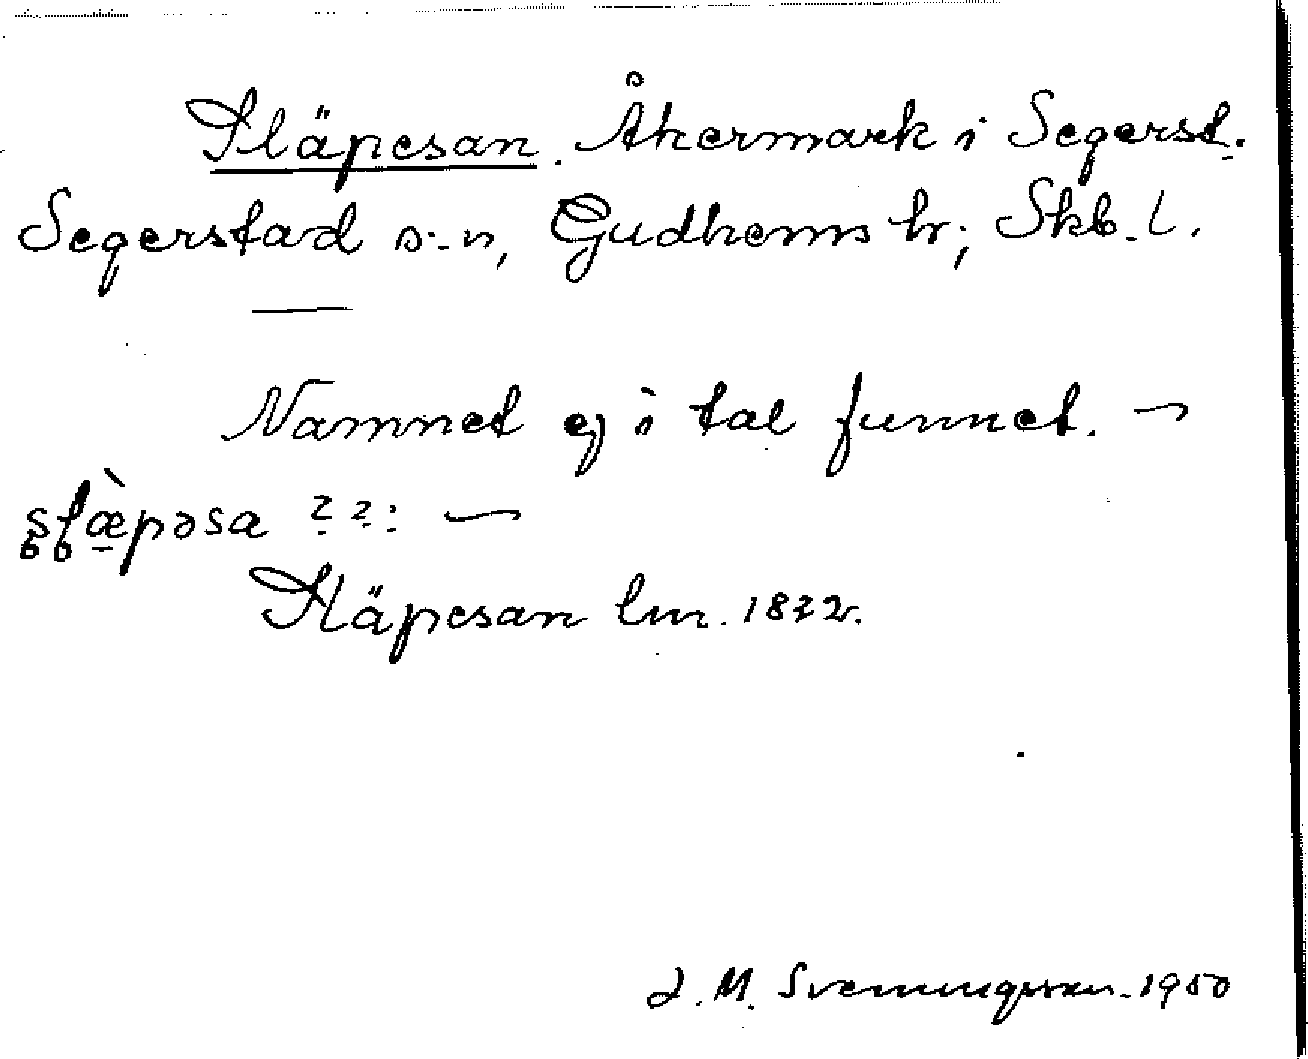 Släpesan. Åkermark i Segerst.
Segerstad s:n, Gudhems hr; Skb. l.
Namnet ej i tal funnet. —
s̥l̥æ̀pəsa ? ? : —
Släpesan lm. 1822.
J. M. Svenningsson 1950